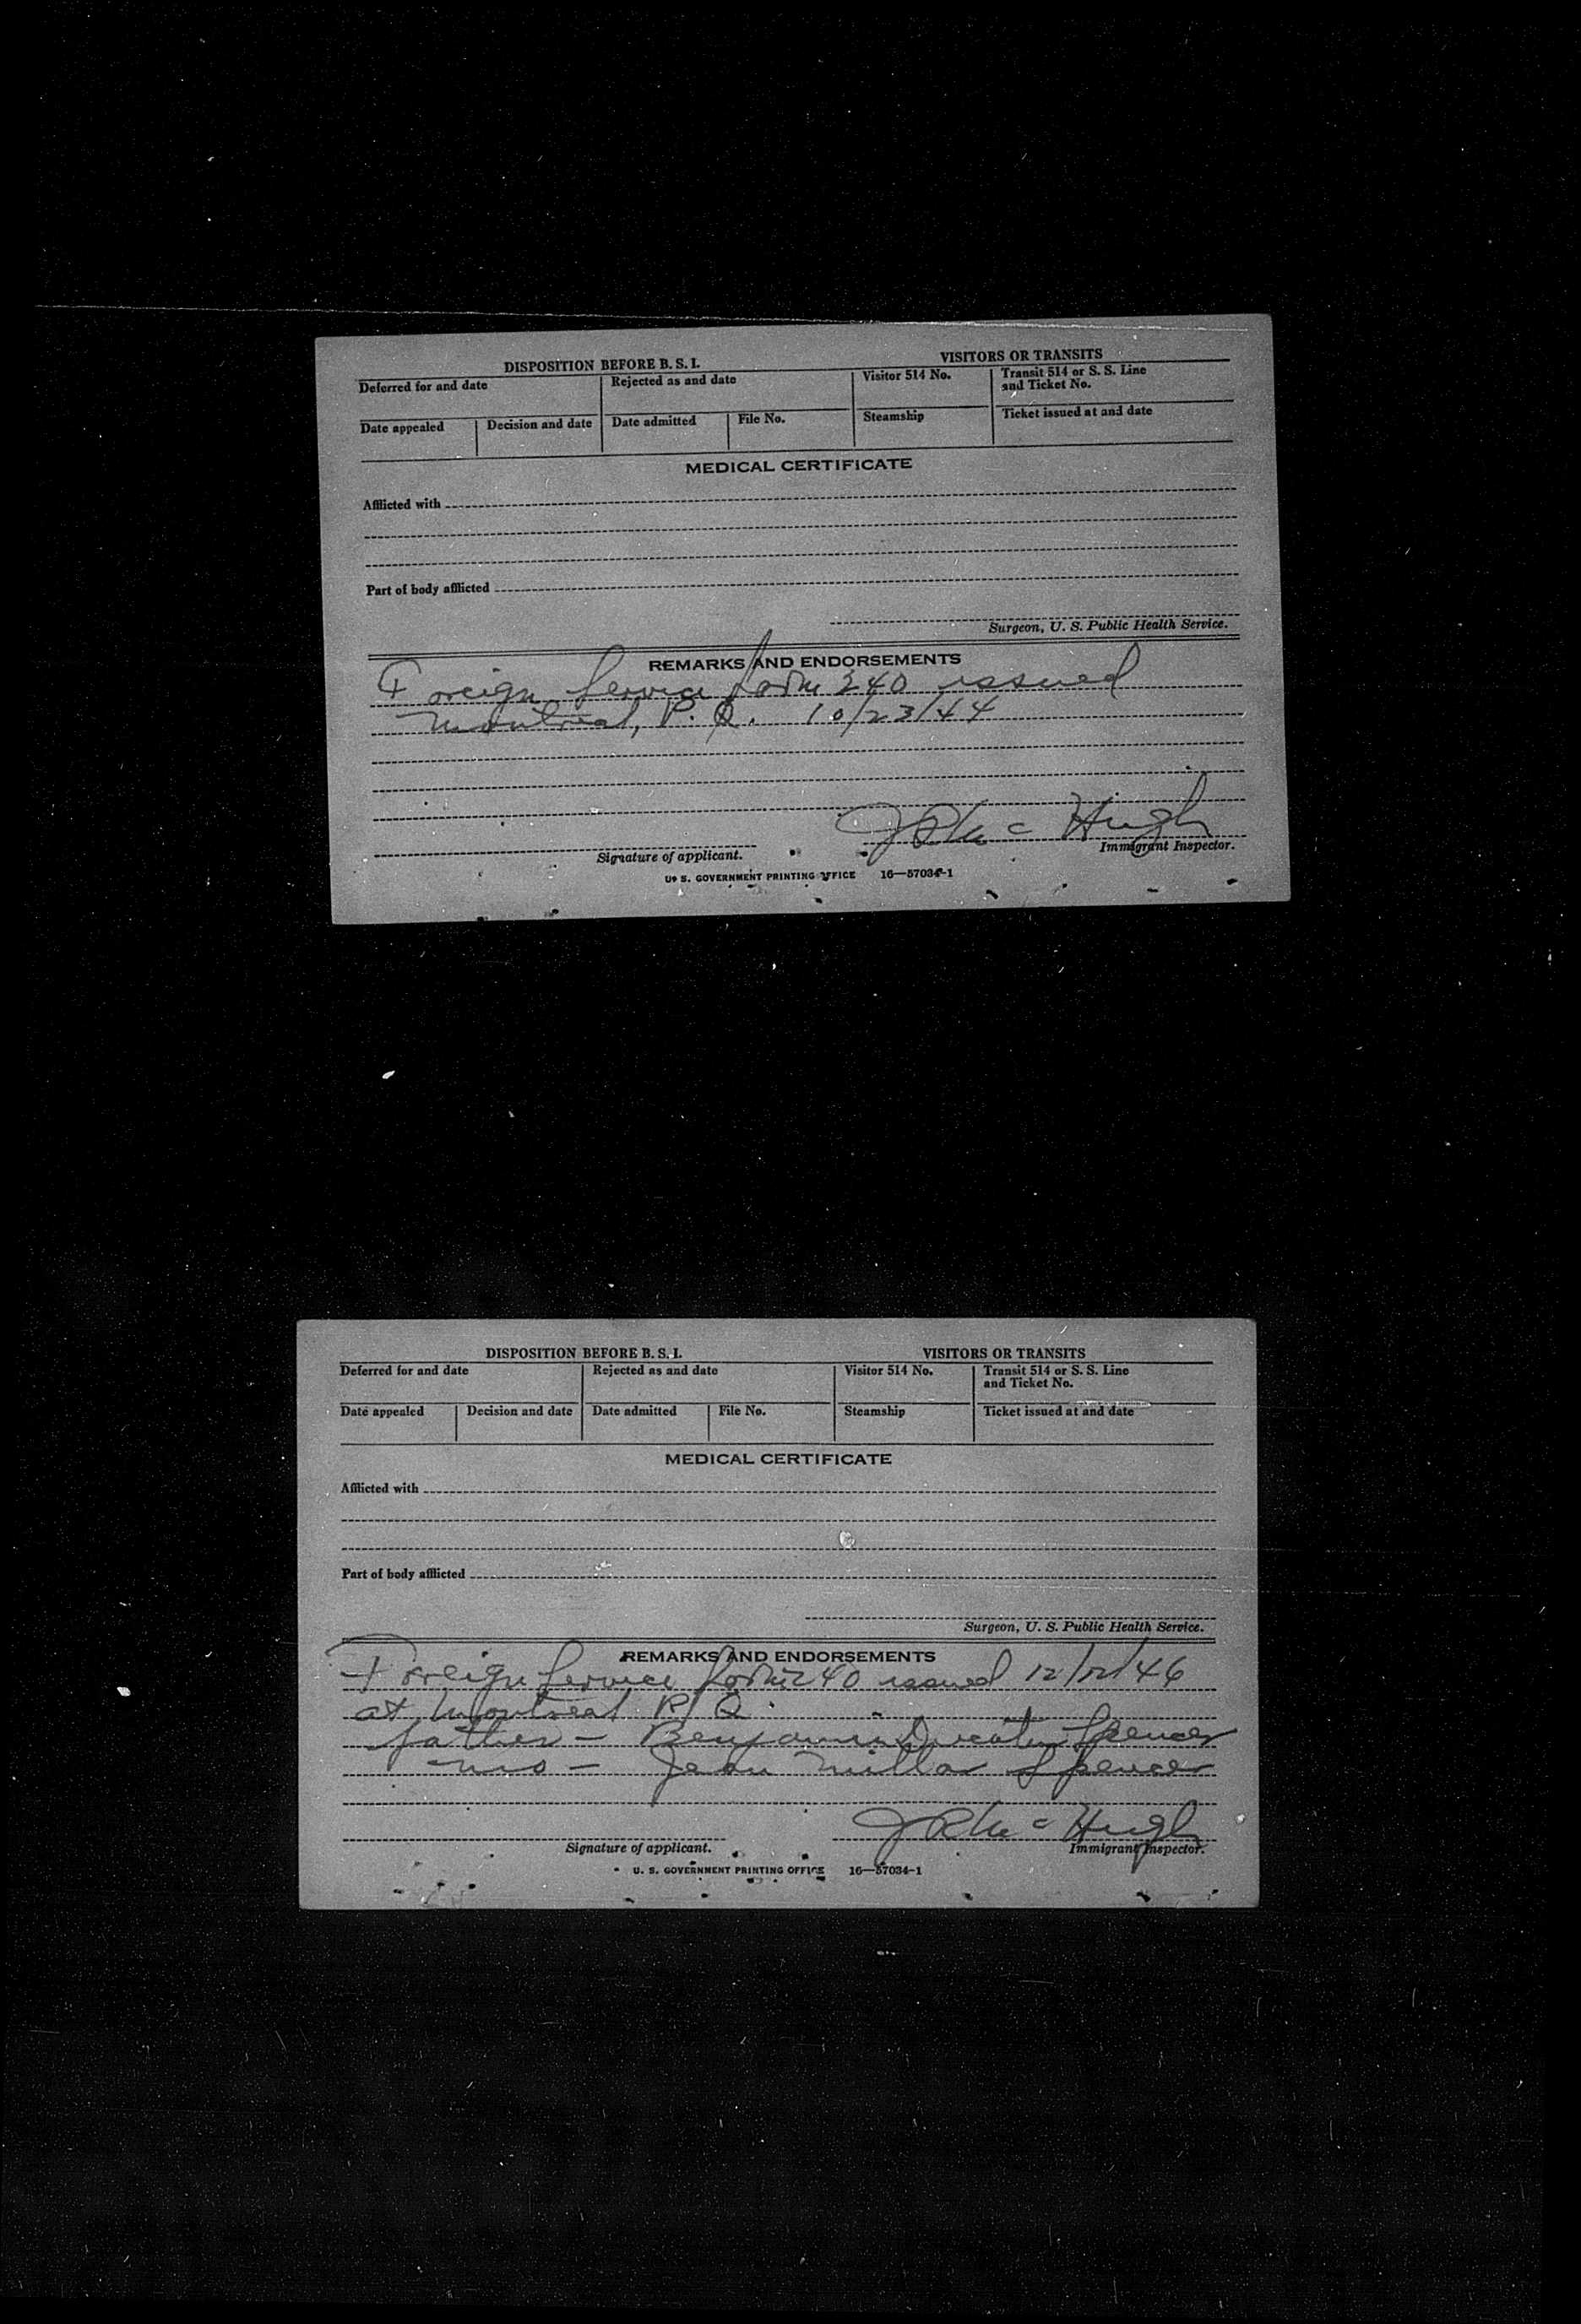 DISPOSITION BEFORE B. S. I. VISITORS OR TRANSITS
Deferred for and date Rejected as and date Visitor 514 No. Transit 514 or S. S. Line and Ticket No.
Date appealed Decision and date Date admitted File No. Steamship Ticket issued at and date
MEDICAL CERTIFICATE
Afflicted with
Part of body afflicted
Surgeon, U. S. Public Health Service.
REMARKS AND ENDORSEMENTS
Foreign Service form 240 issued
Montreal, P. Q. 10/23/44
JR McHugh
Signature of applicant. Immigrant Inspector.
U. S. GOVERNMENT PRINTING OFFICE 16—57034-1
DISPOSITION BEFORE B. S. I. VISITORS OR TRANSITS
Deferred for and date Rejected as and date Visitor 514 No. Transit 514 or S. S. Line and Ticket No.
Date appealed Decision and date Date admitted File No. Steamship Ticket issued at and date
MEDICAL CERTIFICATE
Afflicted with
Part of body afflicted
Surgeon, U. S. Public Health Service.
REMARKS AND ENDORSEMENTS
Foreign Service form 240 issued 12/12/46
at Montreal P. Q.
father - Benjamin Spencer
mo - Jean Millar Spencer
JR McHugh
Signature of applicant. Immigrant Inspector.
U. S. GOVERNMENT PRINTING OFFICE 16—57034-1